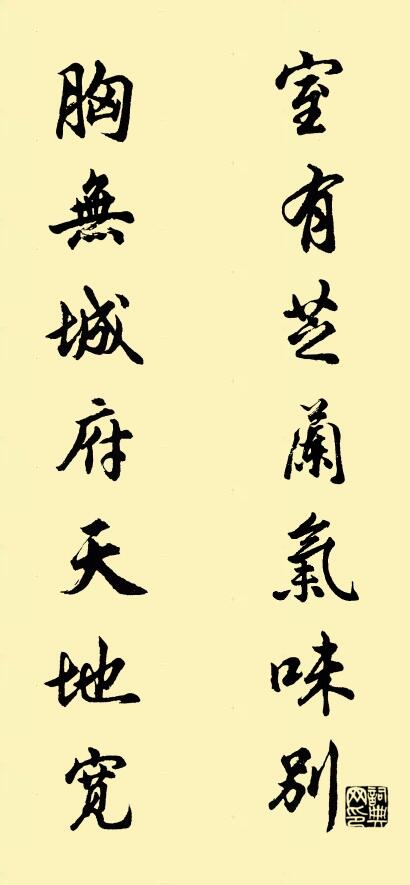 室有芝蘭氣味別
胸無城府天地寬
詞典网印